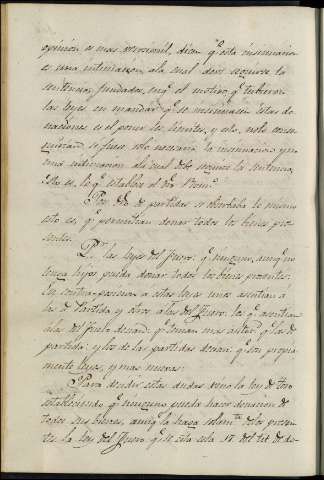 opinion es mas verosimil, dicen qe esta insinuacion
es una intimacion, a la cual debe seguirse la
sentencia, fundados, en qe el motivo qe tubieron
las leyes en mandar qe se insinuasen estas do-
naciones es el poner les limites, y esto, no lo conse-
guirian si fuese solo necesaria la insinuacion y no
una intimacion a la cual debe seguirse la sentencia.
Esto es, lo qe establece el dro Rom.o
Por dro de partidas se observaba lo mismo
esto es, qe permitian donar todos los bienes pre-
sentes.
Pr las leyes del fuero qe ninguno, aunqe no
tenga hijos pueda donar todos los bienes presentes.
En contra-posicion a estas leyes unos asentian á
las de Partida y otros á las del fuero: los qe asentian
a las del fuero decian qe tenian mas autor.d qe las de
partida; y los de las partidas decian qe son propia-
mente leyes, y mas nuevas:
Para decidir estas dudas vino la ley de toro
estableciendo qe ninguno pueda hacer donacion de
todos sus bienes, aunqe la haga solam.te de los presen-
tes la ley del fuero qe se cita es la 17 del tit. de do-